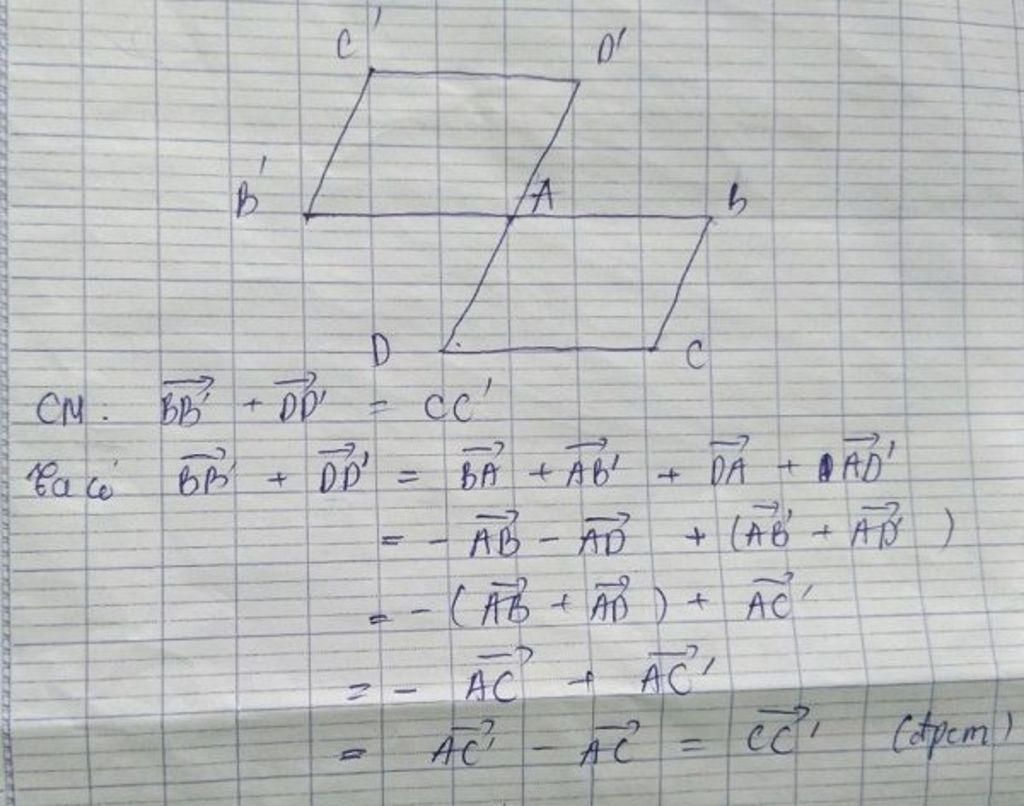 C' D'
B' A B
D C
CM: $\overrightarrow{BB'} + \overrightarrow{DD'} = CC'$
Ta có $\overrightarrow{BB'} + \overrightarrow{DD'} = \overrightarrow{BA} + \overrightarrow{AB'} + \overrightarrow{DA} + \overrightarrow{AD'}$
$= - \overrightarrow{AB} - \overrightarrow{AD} + (\overrightarrow{AB'} + \overrightarrow{AD'})$
$= - (\overrightarrow{AB} + \overrightarrow{AD}) + \overrightarrow{AC'}$
$= - \overrightarrow{AC} + \overrightarrow{AC'}$
$= \overrightarrow{AC'} - \overrightarrow{AC} = \overrightarrow{CC'}$ (đpcm)